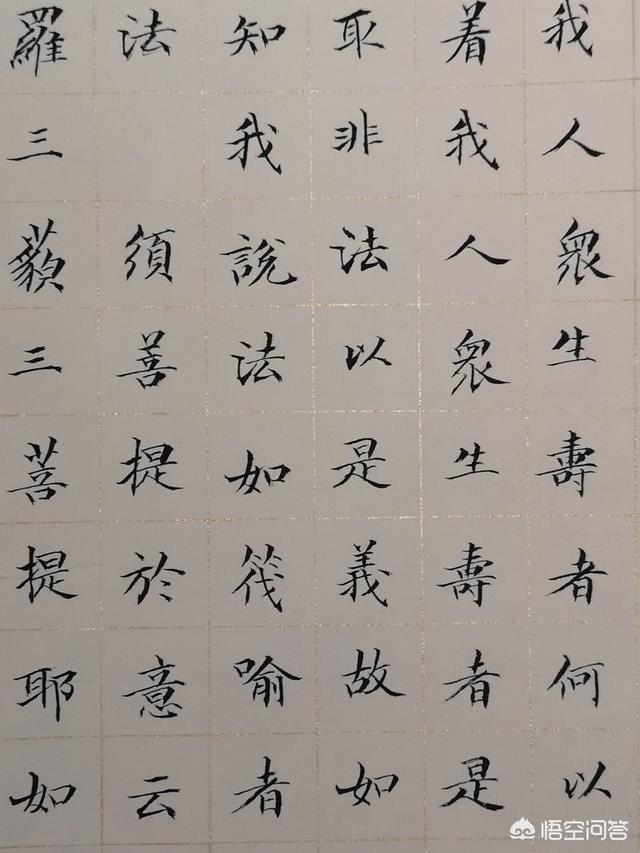 我人眾生壽者何以
着我人眾生壽者是
取非法以是義故如
知我說法如筏喻者
法 須善提於意云
羅三藐三菩提耶如
悟空问答